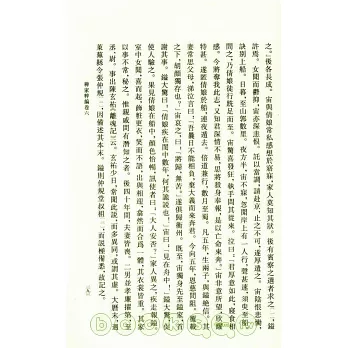 之。後各長成。宙與倩娘常私感想於寤寐，家人莫知其狀。後有賓寮之選者求之，鎰
許焉。女聞而鬱抑，宙亦深恚恨。託以當調，請赴京，止之不可，遂厚遣之。宙陰恨悲慟，
訣別上船。日暮，至山郭數里。夜方半，宙不寐，忽聞岸上有一人，行聲甚速，須臾至船。
問之，乃倩娘徒行跣足而至。宙驚喜發狂，執手問其從來。泣曰：「君厚意如此，寢食相
感。今將奪我此志，又知君深情不易，思將殺身奉報，是以亡命來奔。」宙非意所望，欣躍
特甚。遂匿倩娘於船，連夜遁去。倍道兼行，數月至蜀。凡五年，生兩子，與鎰絕信。其
妻常思父母，涕泣言曰：「吾曩日不能相負，棄大義而來奔君。今向五年，恩慈間阻，覆載
之下，胡顏獨存也？」宙哀之，曰：「將歸，無苦。」遂俱歸衡州。既至，宙獨身先至鎰家，首
謝其事。鎰大驚曰：「倩娘疾在閨中數年，何其詭說也！」宙曰：「見在舟中！」鎰大驚，促
使人驗之。果見倩娘在船中，顏色怡暢，訊使者曰：「大人安否？」家人異之，疾走報鎰。
室中女聞，喜而起，飾粧更衣，笑而不語，出與相迎，翕然而合爲一體，其衣裳皆重。其家
以事不常，秘之，惟親戚間有潛知之者。後四十年間，夫妻皆喪。二男並孝廉擢第，至
丞、尉。事出陳玄祐《離魂記》云。玄祐少日，常聞此說，而多異同，或謂其虛。大曆末，遇
萊蕪縣令張仲規，因備述其本末。鎰則仲規堂叔祖，而說極備悉，故記之。
稗家粹編卷六